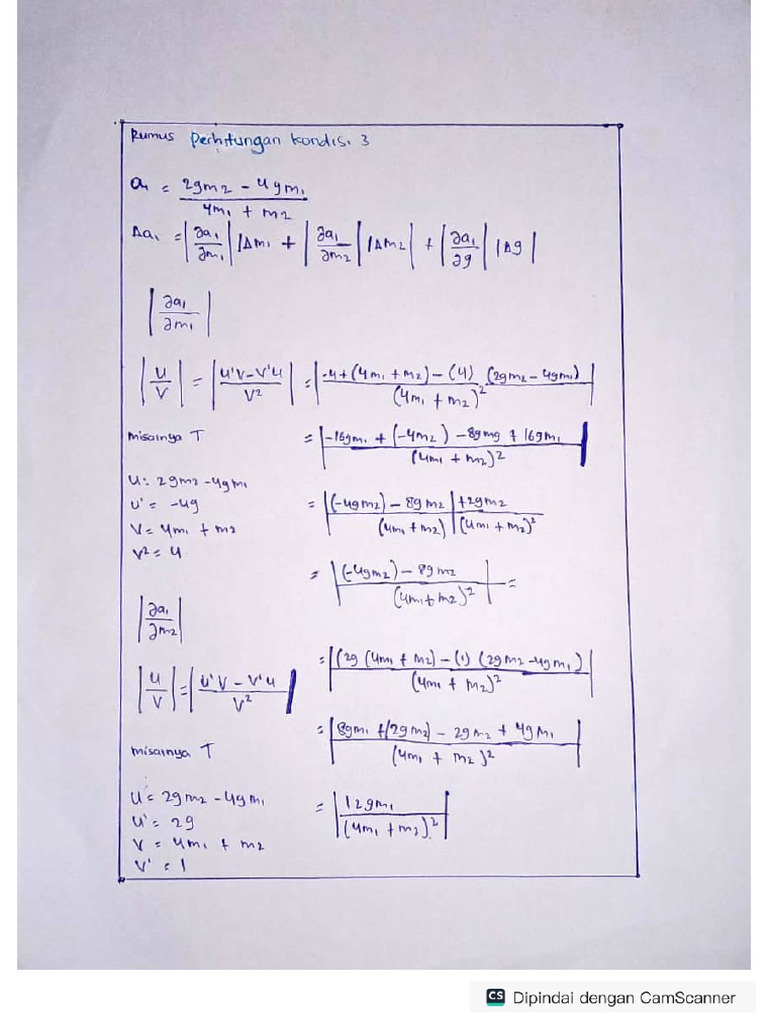 Rumus Perhitungan Kondisi 3
a₁ = (2gm2 - 4gm₁) / (4m₁ + m2)
Δa₁ = |∂a₁/∂m₁| |Δm₁ + |∂a₁/∂m₂| |Δm₂| + |∂a₁/∂g| |Δg|
|∂a₁/∂m₁|
|u/v| = |(u'v - v'u)/v²| = |(-4 + (4m₁ + m2) - (4) (2gm2 - 4gm₁)) / (4m₁ + m2)²|
Misalnya T
= |(-16gm₁ + (-4m2) - 8gmg + 16gm₁) / (4m₁ + m2)²|
u: 2gm2 - 4gm₁
u' = -4g
= |((-4gm2) - 8gm2 / (4m₁ + m2) | +2gm2 / (4m₁ + m2)²
v = 4m₁ + m2
v² = 4
= |((-4gm2) - 8gm2) / (4m₁ + m2)²| =
|∂a₁/∂m2|
|u/v| = |(u'v - v'u)/v²|
= |((2g (4m₁ + m2) - (1) (2gm2 - 4gm₁)) / (4m₁ + m2)²|
Misalnya T
= |(8gm₁ + (2gm2) - 2gm2 + 4gm₁) / (4m₁ + m2)²|
u = 2gm2 - 4gm₁
u' = 2g
v = 4m₁ + m2
v' = 1
= |12gm₁ / (4m₁ + m2)²|
CS Dipindai dengan CamScanner